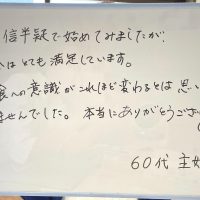 信半疑で始めてみましたが、
はとても満足しています。
への意識がこれほど変わるとは思い
ませんでした。本当にありがとうござい
60代 主